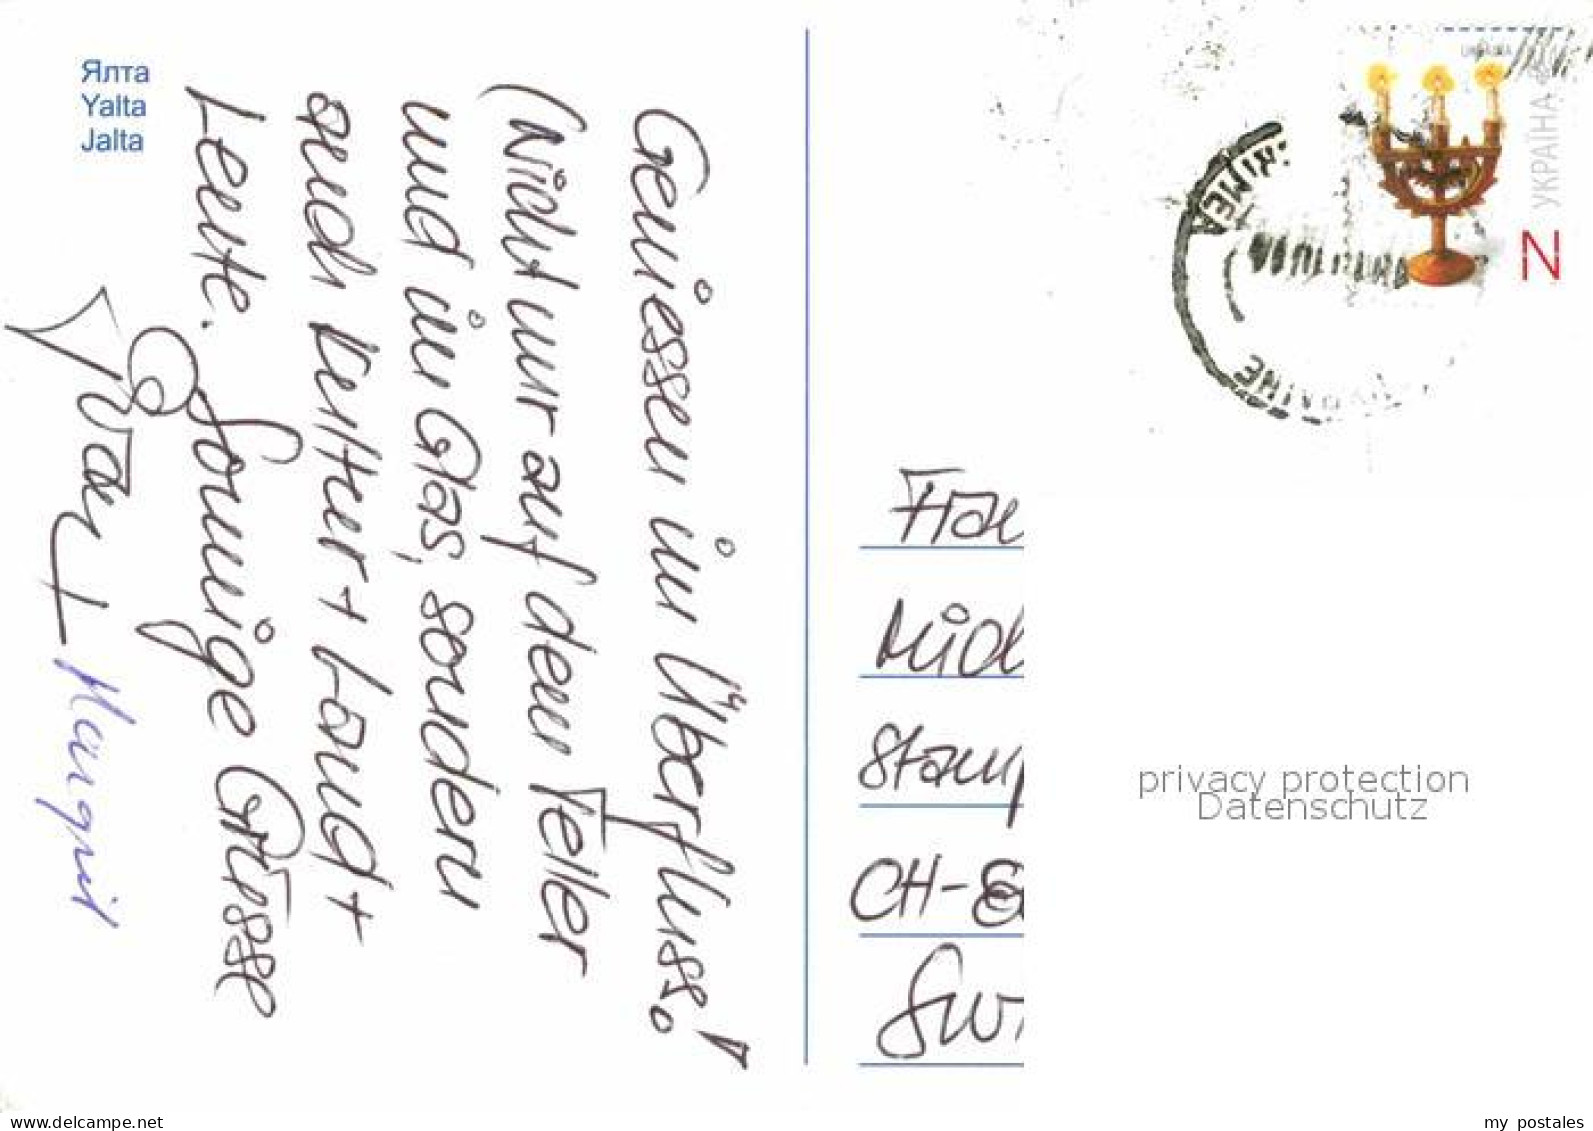 Ялта
Yalta
Jalta
Geniessen im Überfluss!
(Nicht nur auf dem Teller
und im Glas, sondern
auch Kultur + Land +
Leute.
Sonnige Grüsse
Margrit
UKRAINE
УКРАЇНА
N
UKRAINE
CH-
privacy protection
Datenschutz
www.delcampe.net
my_postales